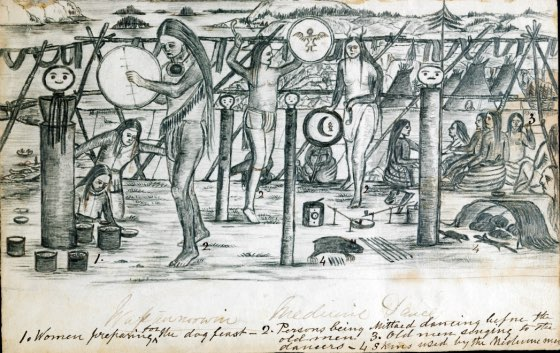 3
2
2
2
1.
4
4
Medicine Dance
1. Women preparing for the dog feast — 2. Persons being Mittaid dancing before the
old men 3. Old men singing to the
dancers — 4 Skins used by the Medicine